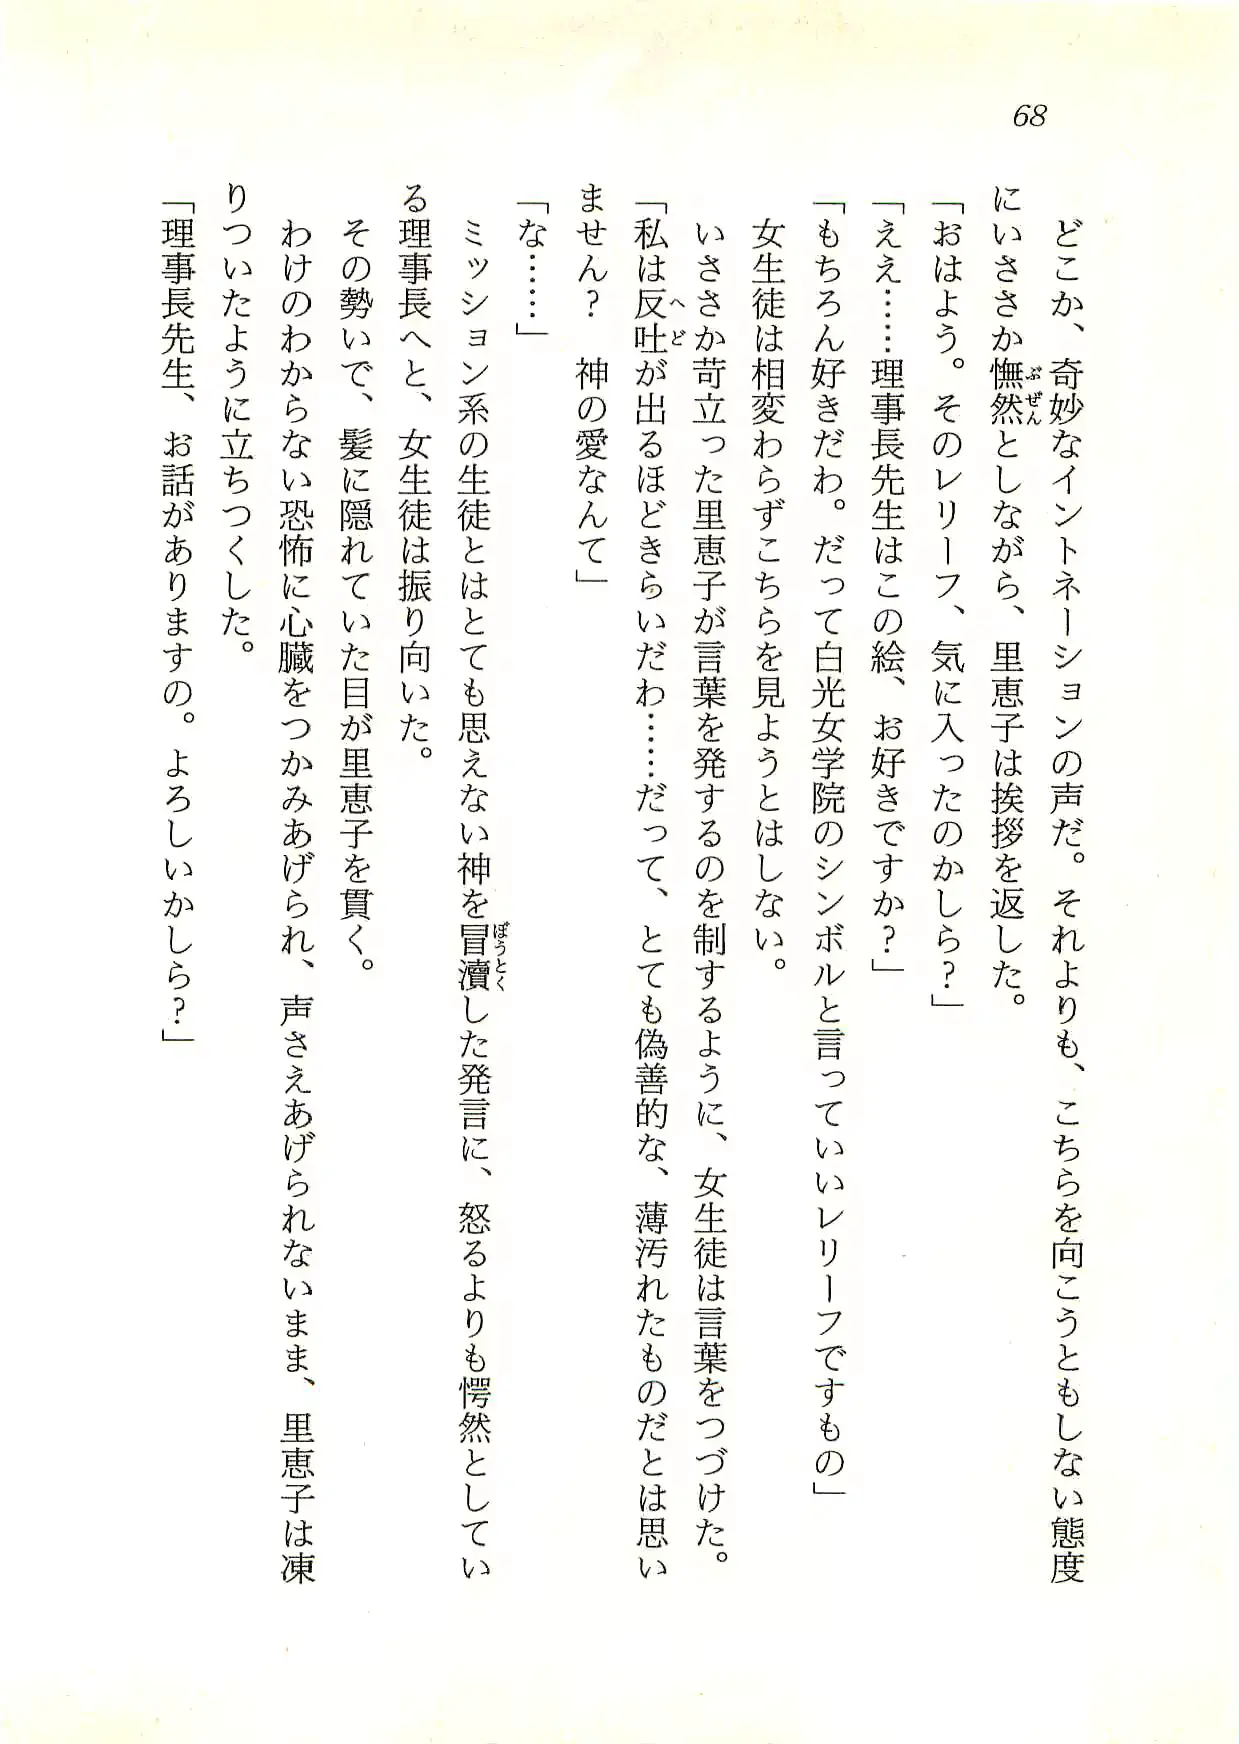 68
どこか、奇妙なイントネーションの声だ。それよりも、こちらを向こうともしない態度
にいささか憮然としながら、里恵子は挨拶を返した。
「おはよう。そのレリーフ、気に入ったのかしら？」
「ええ……理事長先生はこの絵、お好きですか？」
「もちろん好きだわ。だって白光女学院のシンボルと言っていいレリーフですもの」
女生徒は相変わらずこちらを見ようとはしない。
いささか苛立った里恵子が言葉を発するのを制するように、女生徒は言葉をつづけた。
「私は反吐が出るほどきらいだわ……だって、とても偽善的な、薄汚れたものだとは思い
ません？　神の愛なんて」
「な……」
ミッション系の生徒とはとても思えない神を冒瀆した発言に、怒るよりも愕然としてい
る理事長へと、女生徒は振り向いた。
その勢いで、髪に隠れていた目が里恵子を貫く。
わけのわからない恐怖に心臓をつかみあげられ、声さえあげられないまま、里恵子は凍
りついたように立ちつくした。
「理事長先生、お話がありますの。よろしいかしら？」